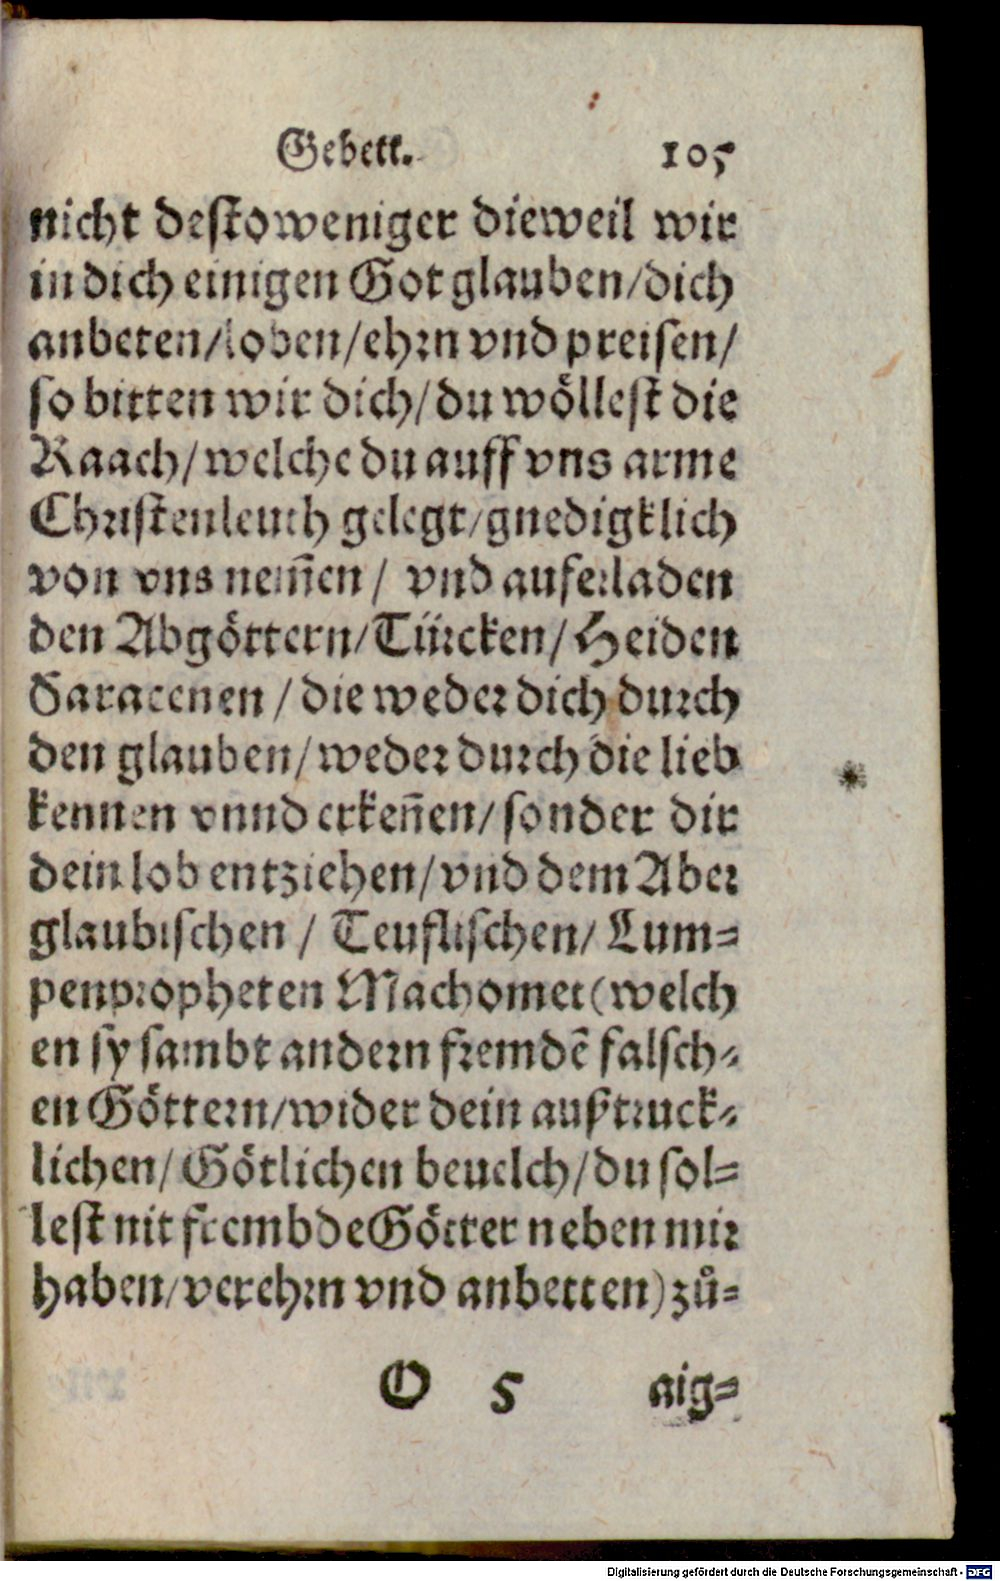 Gebett. 105
nicht destoweniger dieweil wir
in dich einigen Got glauben/dich
anbeten/loben/ehrn vnd preisen/
so bitten wir dich/du wöllest die
Raach/welche du auff vns arme
Christenleuth gelegt/gnedigklich
von vns nem̃en/ vnd auferladen
den Abgöttern/Türcken/Heiden
Saracenen/die weder dich durch
den glauben/weder durch die lieb
kennen vnnd erkeñen/sonder dir
dein lob entziehen/vnd dem Aber
glaubischen/ Teuflischen/ Lum=
penpropheten Machomet(welch
en sy sambt andern fremdẽ falsch=
en Göttern/wider dein außtruck=
lichen/Götlichen beuelch/du sol=
lest nit frembde Götter neben mir
haben/verehrn vnd anbetten)zů=
O 5 aig=
Digitalisierung gefördert durch die Deutsche Forschungsgemeinschaft - DFG